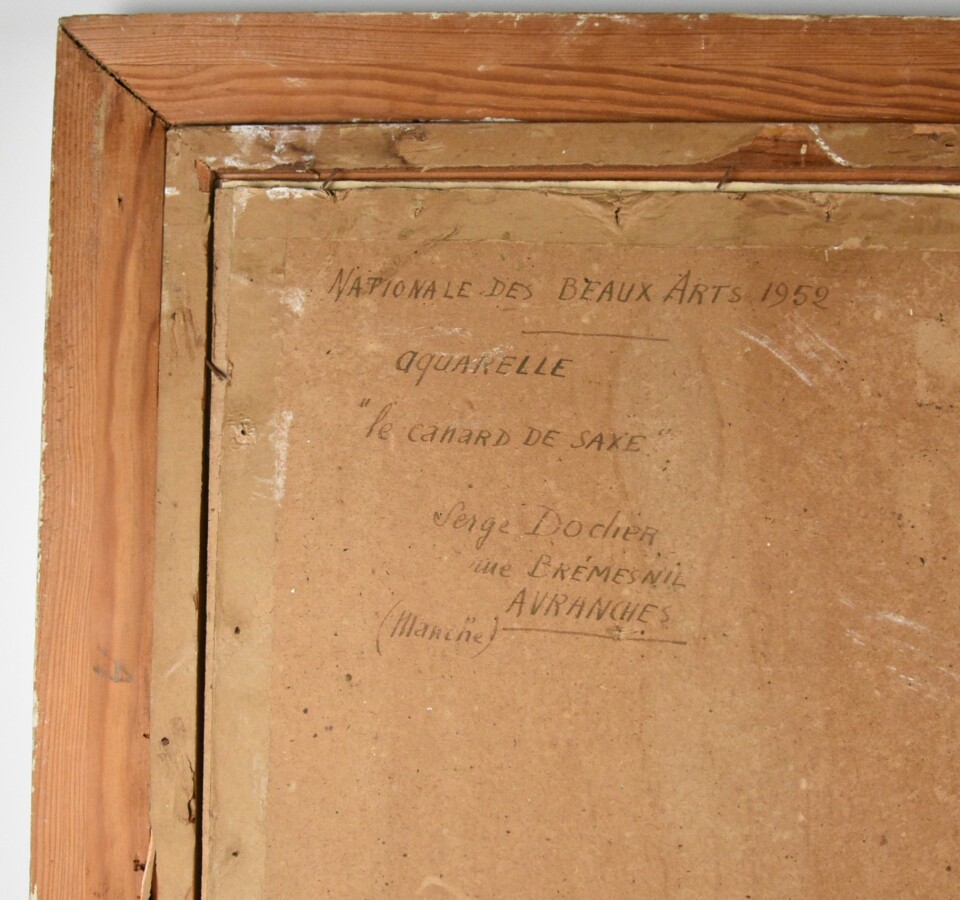 NATIONALE DES BEAUX ARTS 1952
aquARELLE
"le canard DE SAXE"
Serge Docher
rue BRÉMESNIL
AVRANCHES
(Manche)